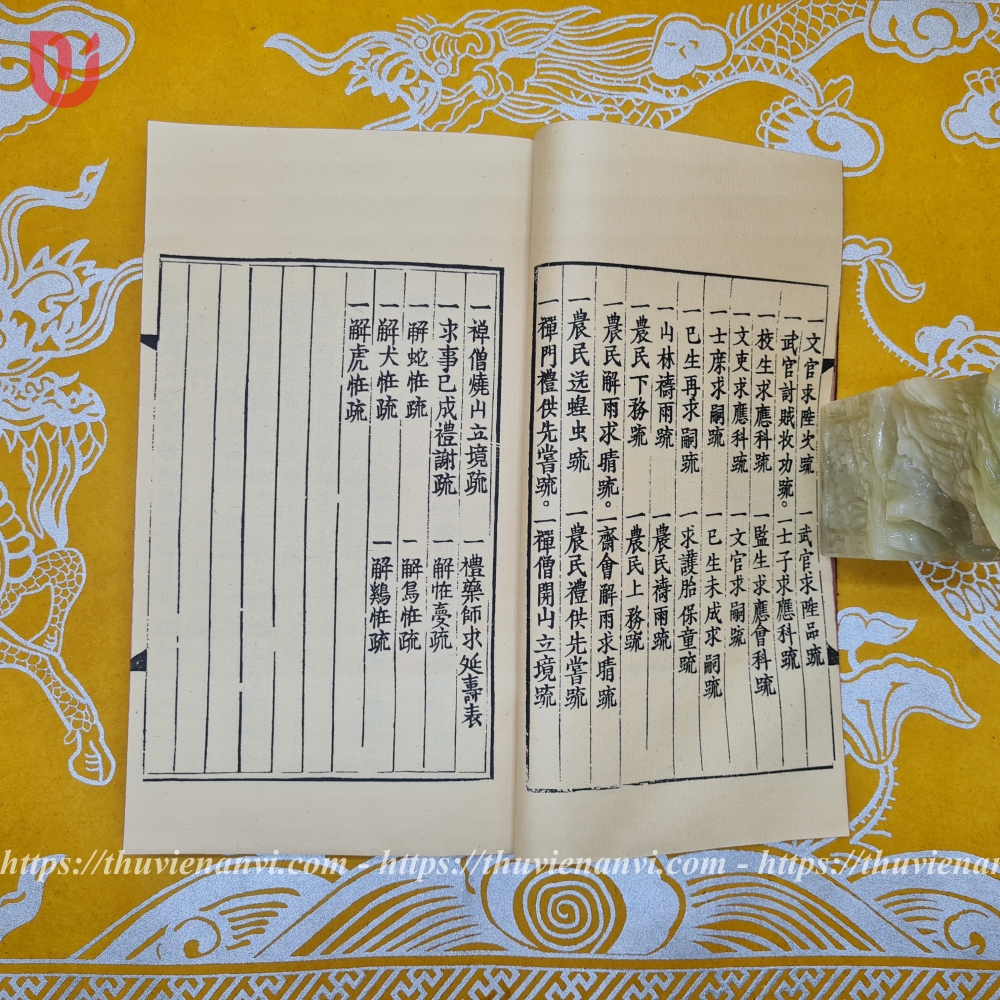 一文官求陞次疏 一武官求陞品疏
一武官討賊收功疏。 一士子求應科疏
一校生求應科疏 一監生求應會科疏
一文吏求應科疏 一文官求嗣疏
一士庶求嗣疏 一已生未成求嗣疏
一已生再求嗣疏 一求護胎保童疏
一山林禱雨疏 一農民禱雨疏
一農民下務疏 一農民上務疏
一農民解雨求晴疏。 一齋會解雨求晴疏
一農民送蝗虫疏 一農民禮供先嘗疏
一禪門禮供先嘗疏。 一禪僧開山立境疏
一禅僧燒山立境疏 一禮藥師求延壽表
一求事已成禮謝疏 一解恠憂疏
一解蛇恠疏 一解鳥恠疏
一解犬恠疏 一解鷄恠疏
一解虎恠疏
https://thuvienanvi.com - https://thuvienanvi.com - https://thuvienanvi